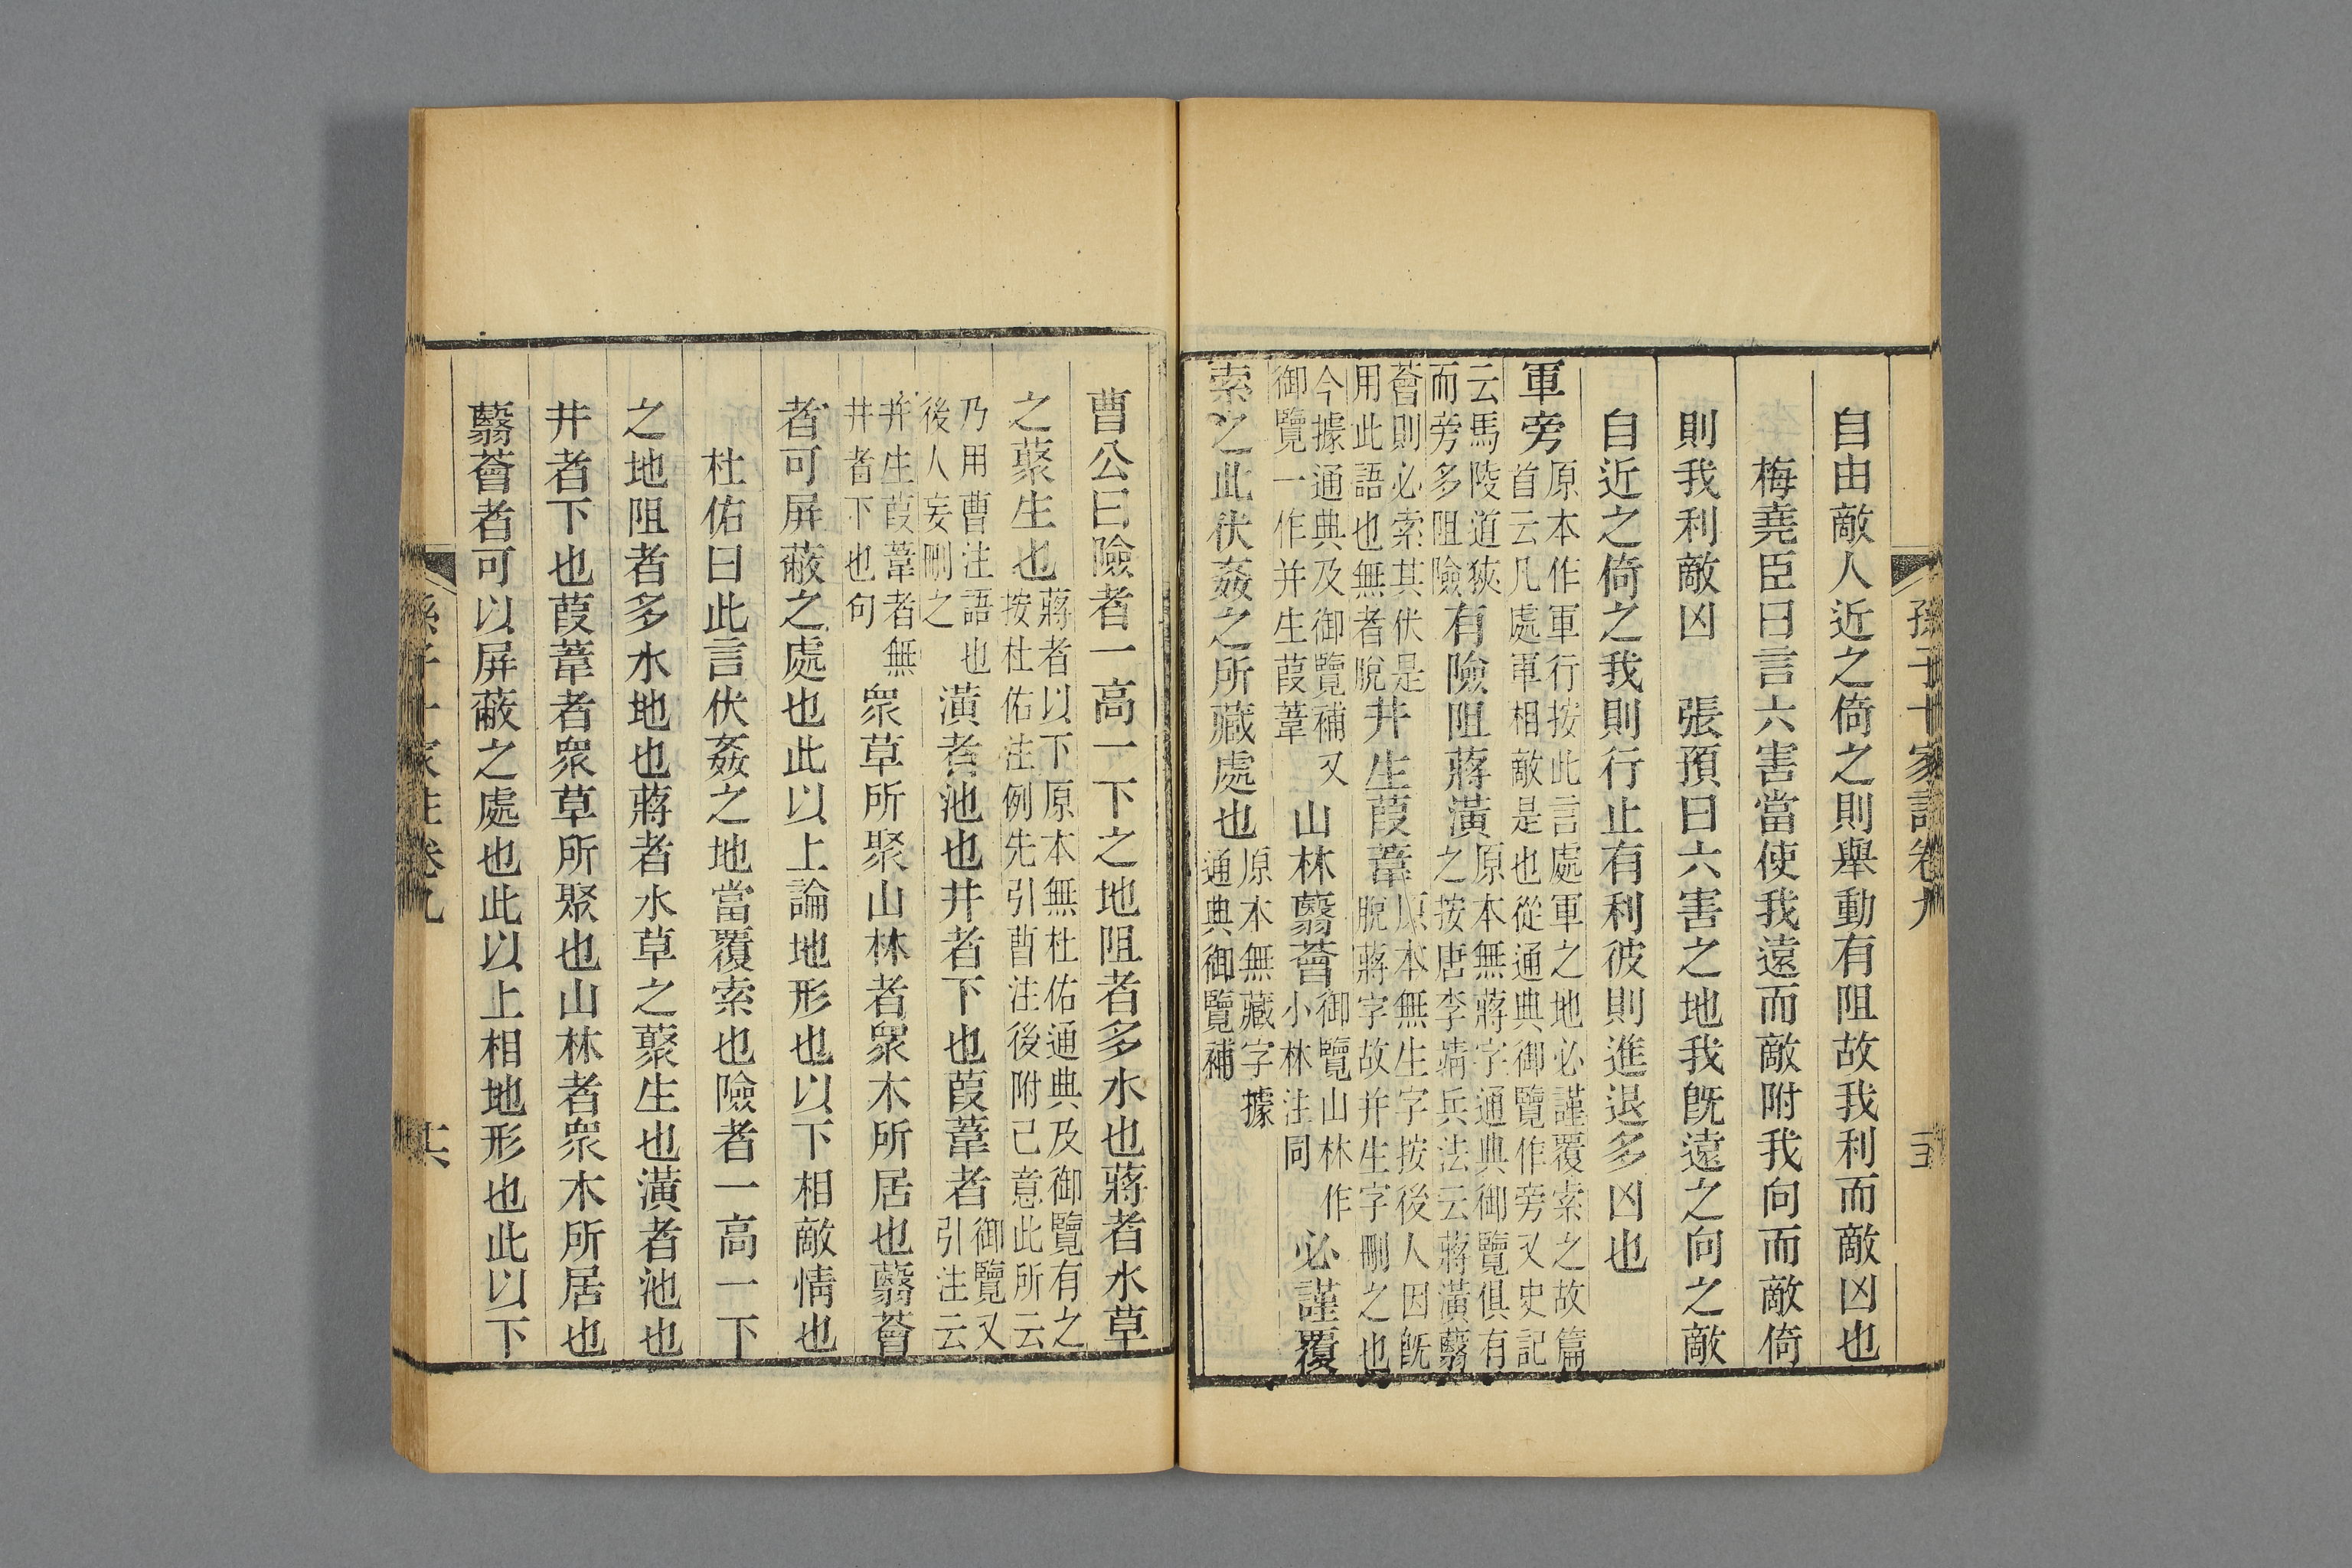 孫子十家註卷九 十五
自由敵人近之倚之則舉動有阻故我利而敵凶也
梅堯臣曰言六害當使我遠而敵附我向而敵倚
則我利敵凶 張預曰六害之地我旣遠之向之敵
自近之倚之我則行止有利彼則進退多凶也
軍旁原本作軍行按此言處軍之地必謹覆索之故篇首云凡處軍相敵是也從通典御覽作旁又史記
云馬陵道狹而旁多阻險有險阻蔣潢原本無蔣字通典御覽俱有之按唐李靖兵法云蔣潢蘙
薈則必索其伏是用此語也無者脫井生葭葦原本無生字按後人因旣脫蔣字故并生字刪之也
今據通典及御覽補又御覽一作并生葭葦山林蘙薈御覽山林作小林注同必謹覆
索之此伏姦之所藏處也原本無藏字據通典御覽補
曹公曰險者一高一下之地阻者多水也蔣者水草
之藂生也蔣者以下原本無杜佑通典及御覽有之按杜佑注例先引曹注後附己意此所云
乃用曹注語也後人妄刪之潢者池也井者下也葭葦者御覽又引注云
井生葭葦者無井者下也句衆草所聚山林者衆木所居也蘙薈
者可屏蔽之處也此以上論地形也以下相敵情也
杜佑曰此言伏姦之地當覆索也險者一高一下
之地阻者多水地也蔣者水草之藂生也潢者池也
井者下也葭葦者衆草所聚也山林者衆木所居也
蘙薈者可以屏蔽之處也此以上相地形也此以下
孫子十家註卷九 十六